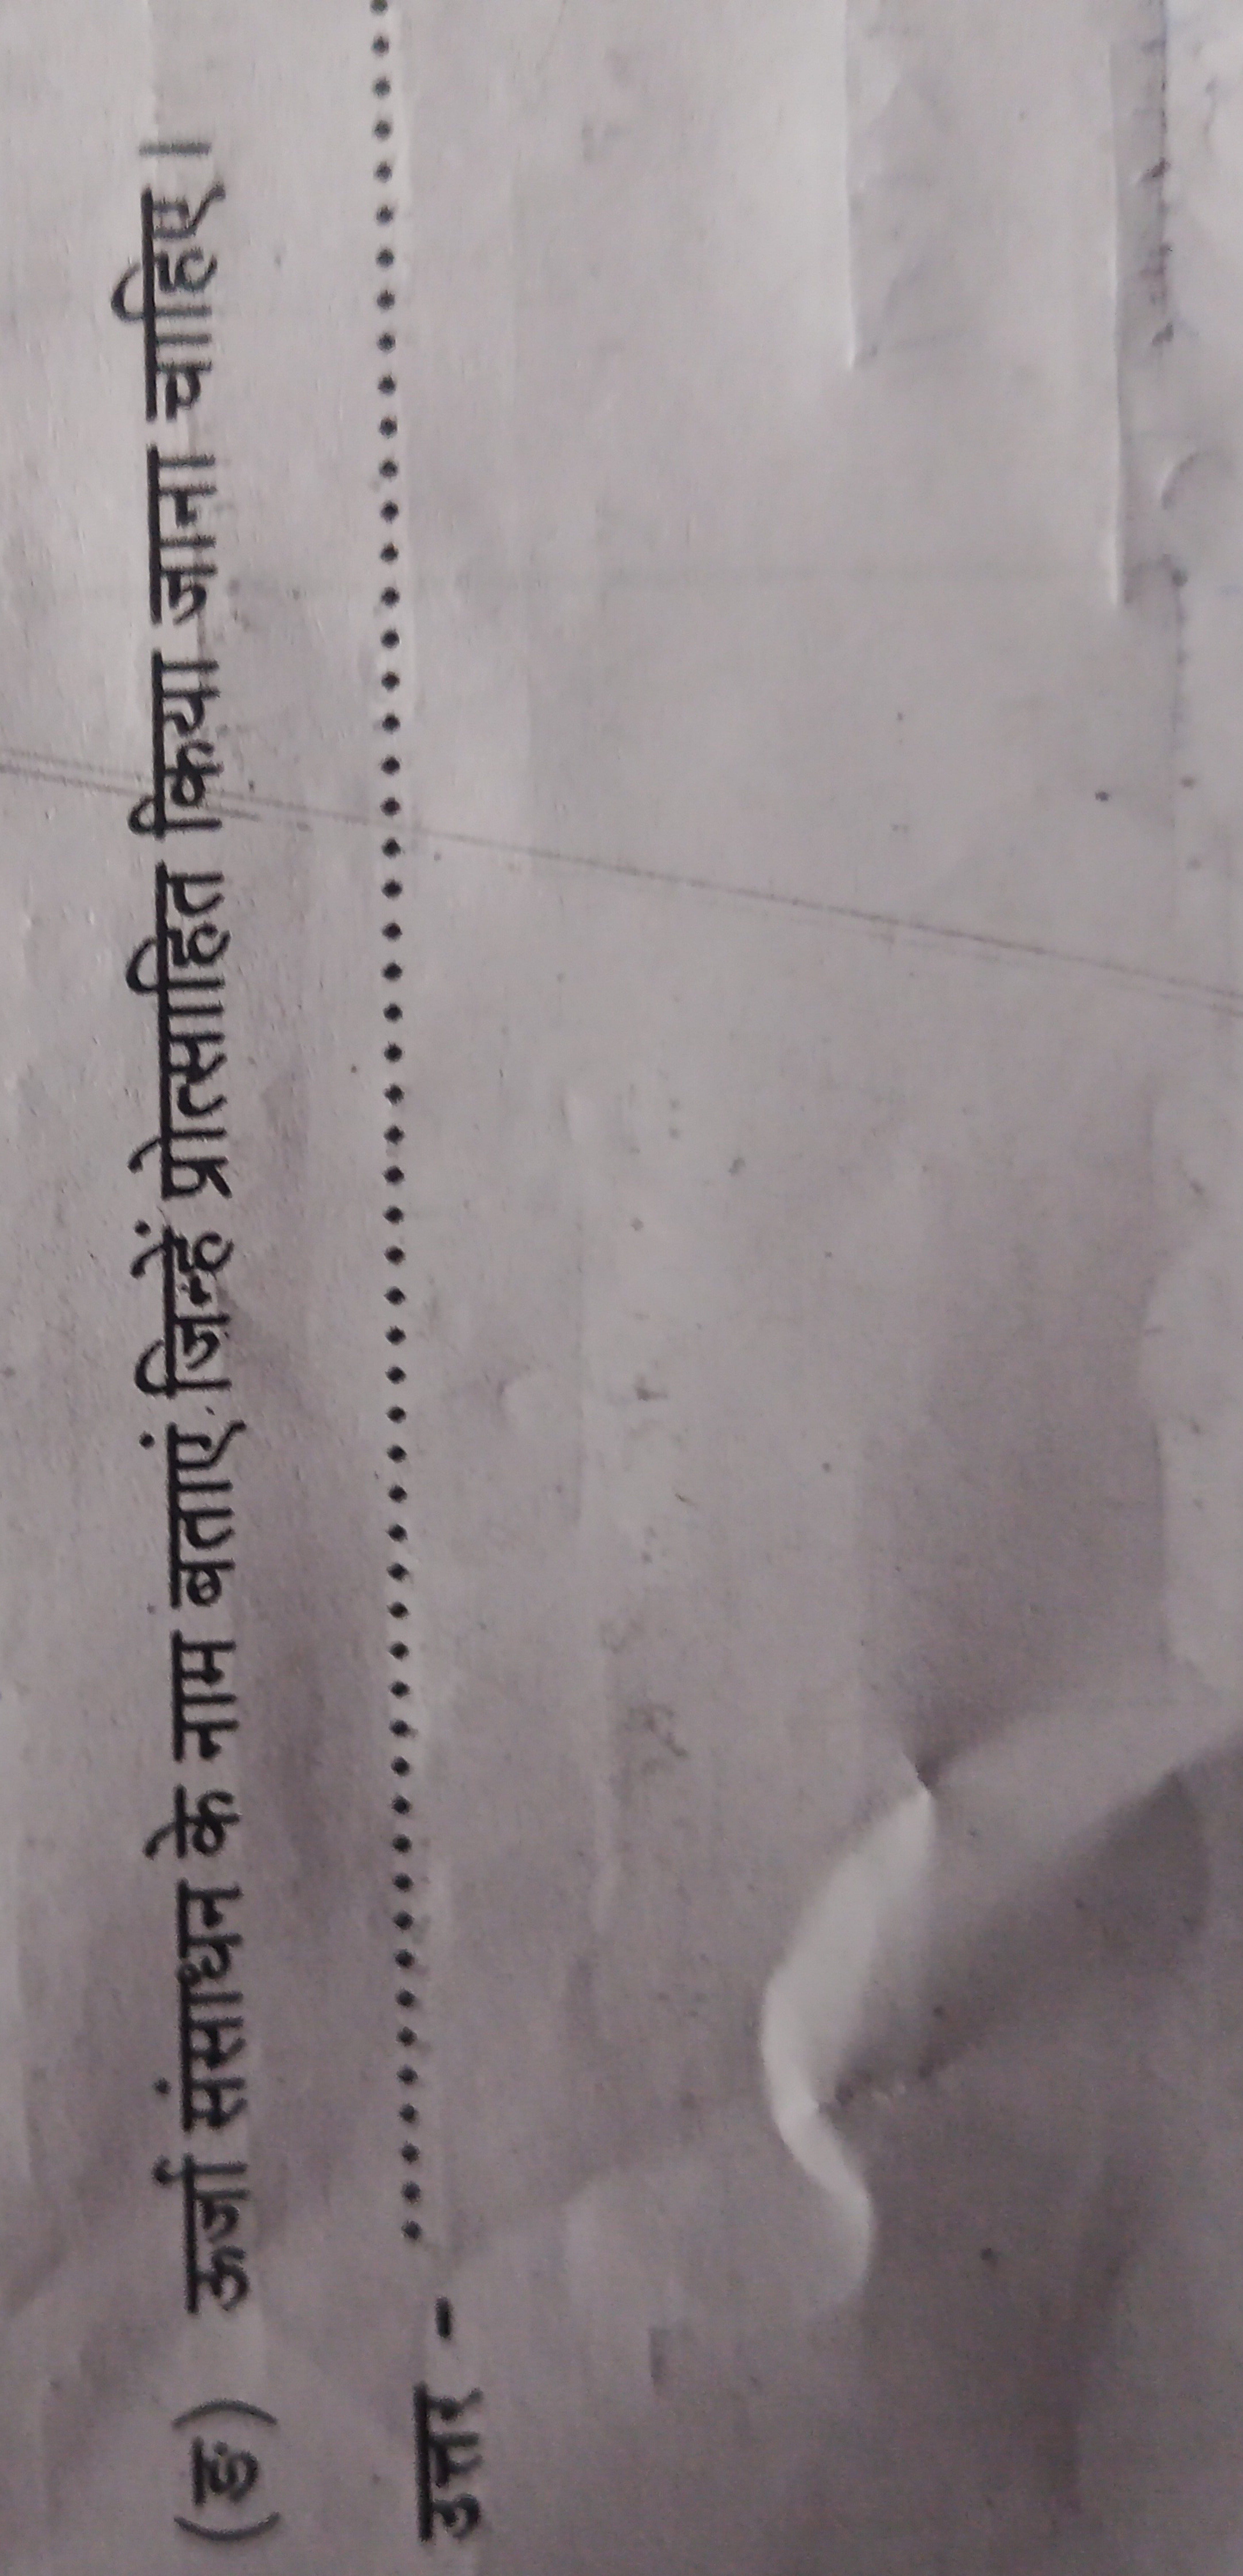 (ङ) ऊर्जा संसाधन के नाम बताएं जिन्हें प्रोत्साहित किया जाना चाहिए।
उत्तर - ........................................................